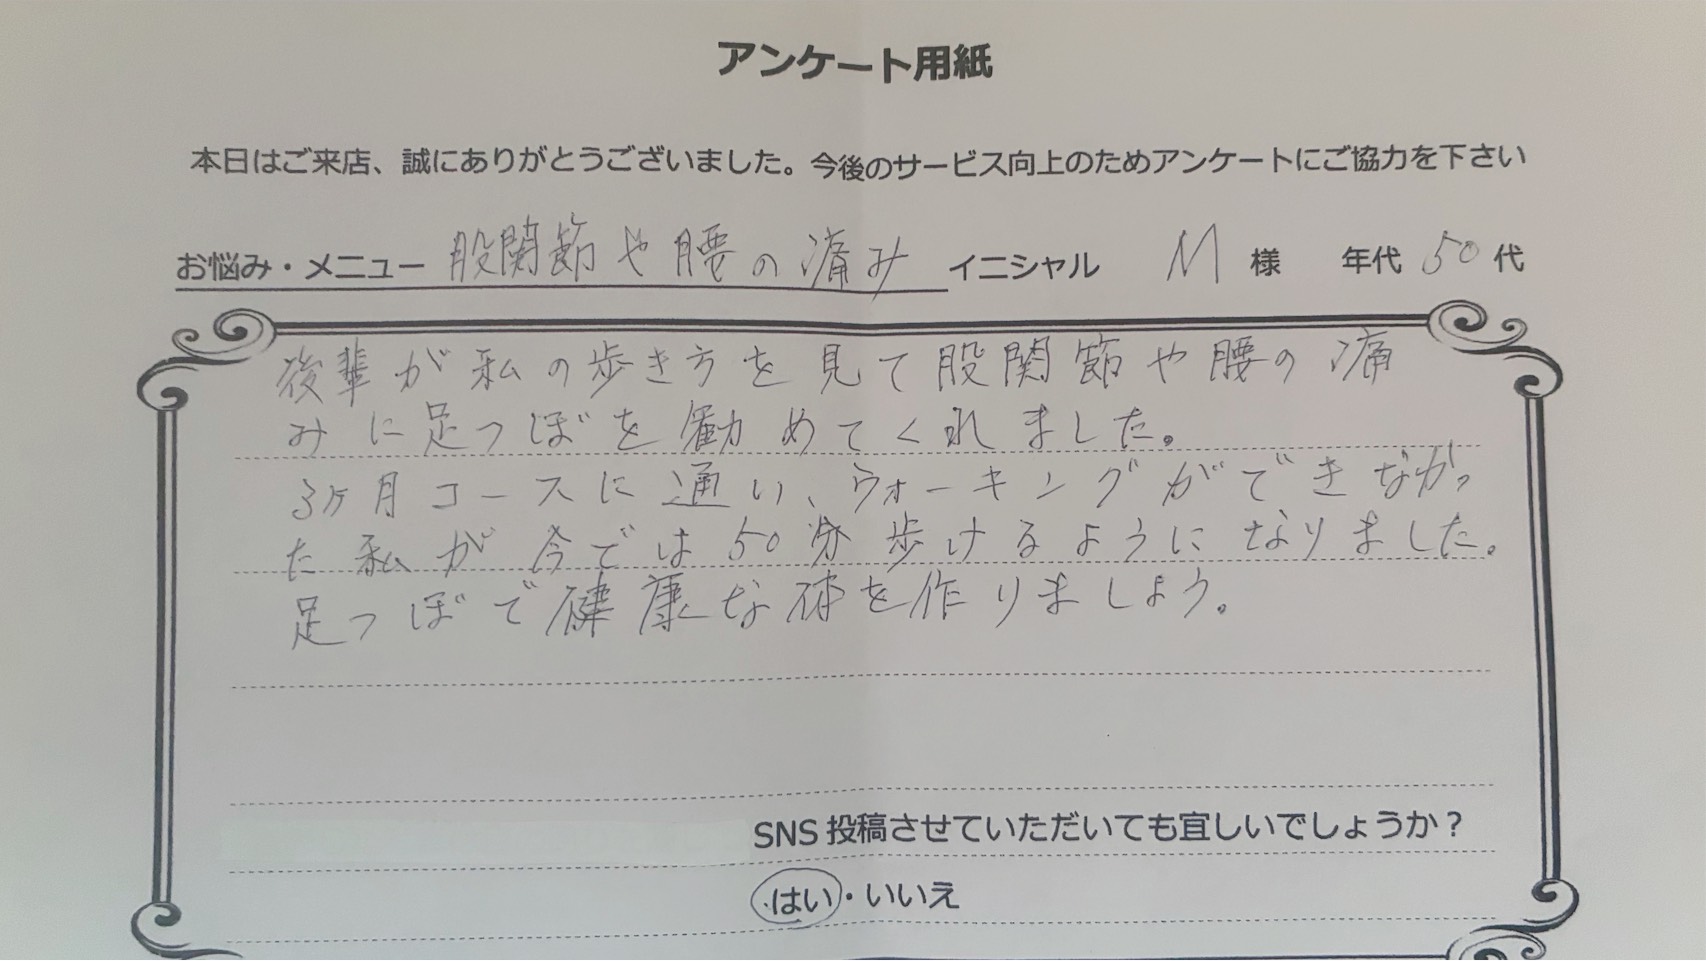 アンケート用紙
本日はご来店、誠にありがとうございました。今後のサービス向上のためアンケートにご協力を下さい
お悩み・メニュー 股関節や腰の痛み イニシャル M 様 年代 50 代
後輩が私の歩き方を見て股関節や腰の痛
みに足つぼを勧めてくれました。
3ヶ月コースに通い、ウォーキングができなかっ
た私が今では50分歩けるようになりました。
足つぼで健康な体を作りましょう。
SNS 投稿させていただいても宜しいでしょうか？
はい・いいえ